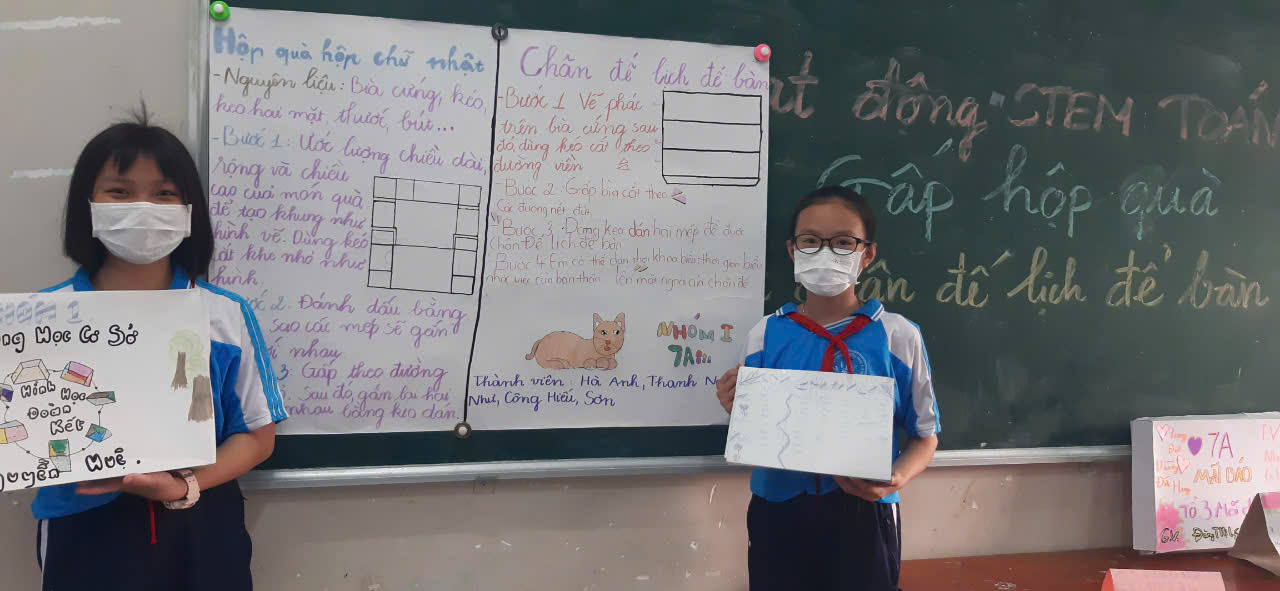 Hộp quà hộp chữ nhật
- Nguyên liệu: Bìa cứng, kéo,
keo hai mặt, thước, bút...
- Bước 1: Ước lượng chiều dài,
rộng và chiều
cao của món quà
để tạo khung như
hình vẽ. Dùng kéo
cắt khe nhỏ như
hình.
ước 2: Đánh dấu bằng
sao các mép sẽ gắn
nhau
3: Gấp theo đường
Sau đó, gắn lại hai
nhau bằng keo dán.
Chân đế lịch để bàn
- Bước 1 Vẽ phác
trên bìa cứng sau
đó, dùng kéo cắt theo
đường viền
- Bước 2: Gấp bìa cắt theo
các đường nét đứt
- Bước 3: Dùng keo dán hai mép để được
chân đế lịch để bàn
- Bước 4 Em có thể dán thời khóa biểu, thời gian biểu,
nhắc việc của bản thân lên mỗi của chân đế
NHÓM I
7A
Thành viên: Hà Anh, Thanh
Như, Công Hiếu, Sơn
ạt động STEM TOÁN
Gấp hộp quà
chân đế lịch để bàn
NHÓM 1
ng Học Cơ Sở
Hình Học
Đoàn
Kết
uyễn Huệ.
7A
MÃI ĐÁO
TỔ 3
GV: